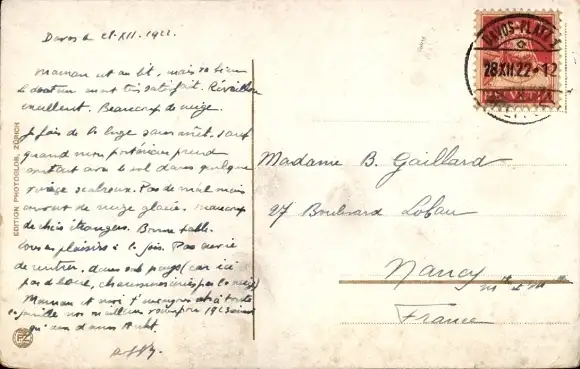 Davos le 28.XII.1922.
Maman est au lit, mais va bien
le docteur est très satisfait. Réveillon
excellent. Beaucoup de neige.
Je fais de la luge sans arrêt, sauf
quand mon postérieur prend
contact avec le sol dans quelque
virage scabreux. Pas de mal mais
couvert de neige glacée. Beaucoup
de chics étrangers. Bonne table.
Tous les plaisirs à la fois. Pas envie
de rentrer dans son pays (car ici
pas de boue, chaussures cirées par la neige)
Maman et moi t'envoyons et à toute
la famille nos meilleurs vœux pour 1923 ainsi
qu'aux
EDITION PHOTOGLOB, ZÜRICH
PZ
DAVOS-PLATZ 1
28.XII.22.-12
HELVETIA
Madame B. Gaillard
27 Boulevard Lobau
Nancy
Mthe et Mlle
France